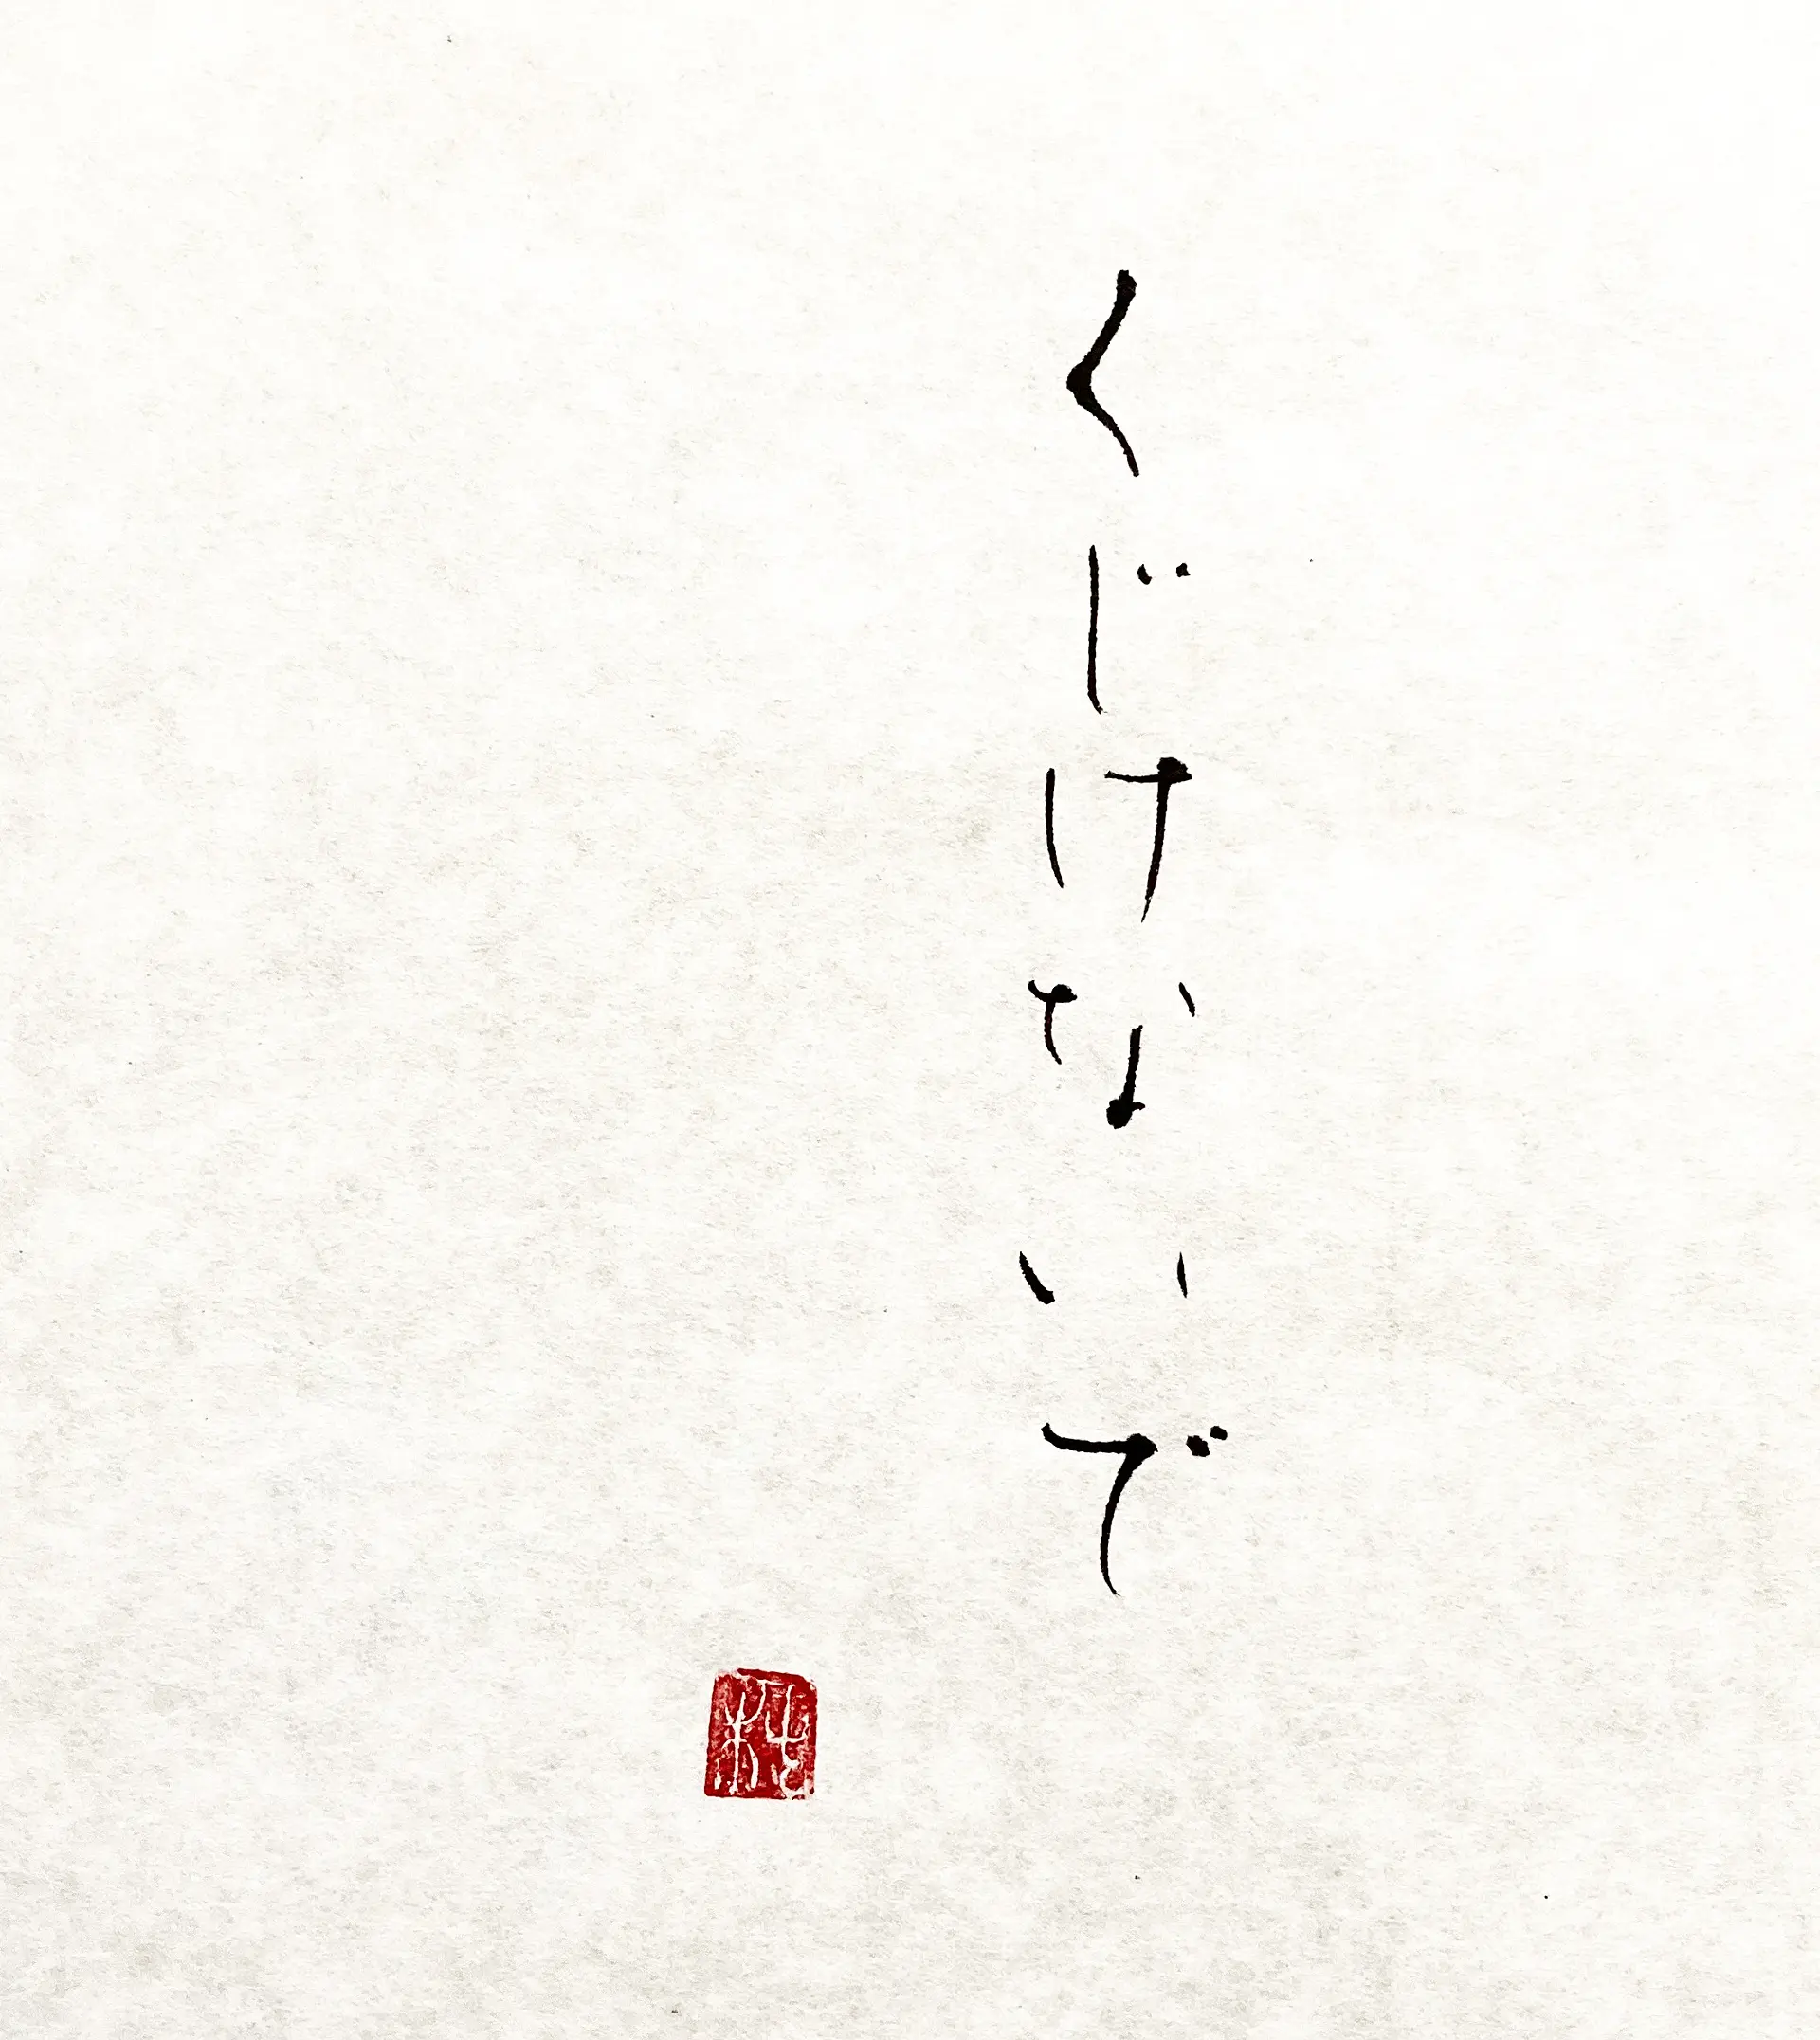 くじけないで